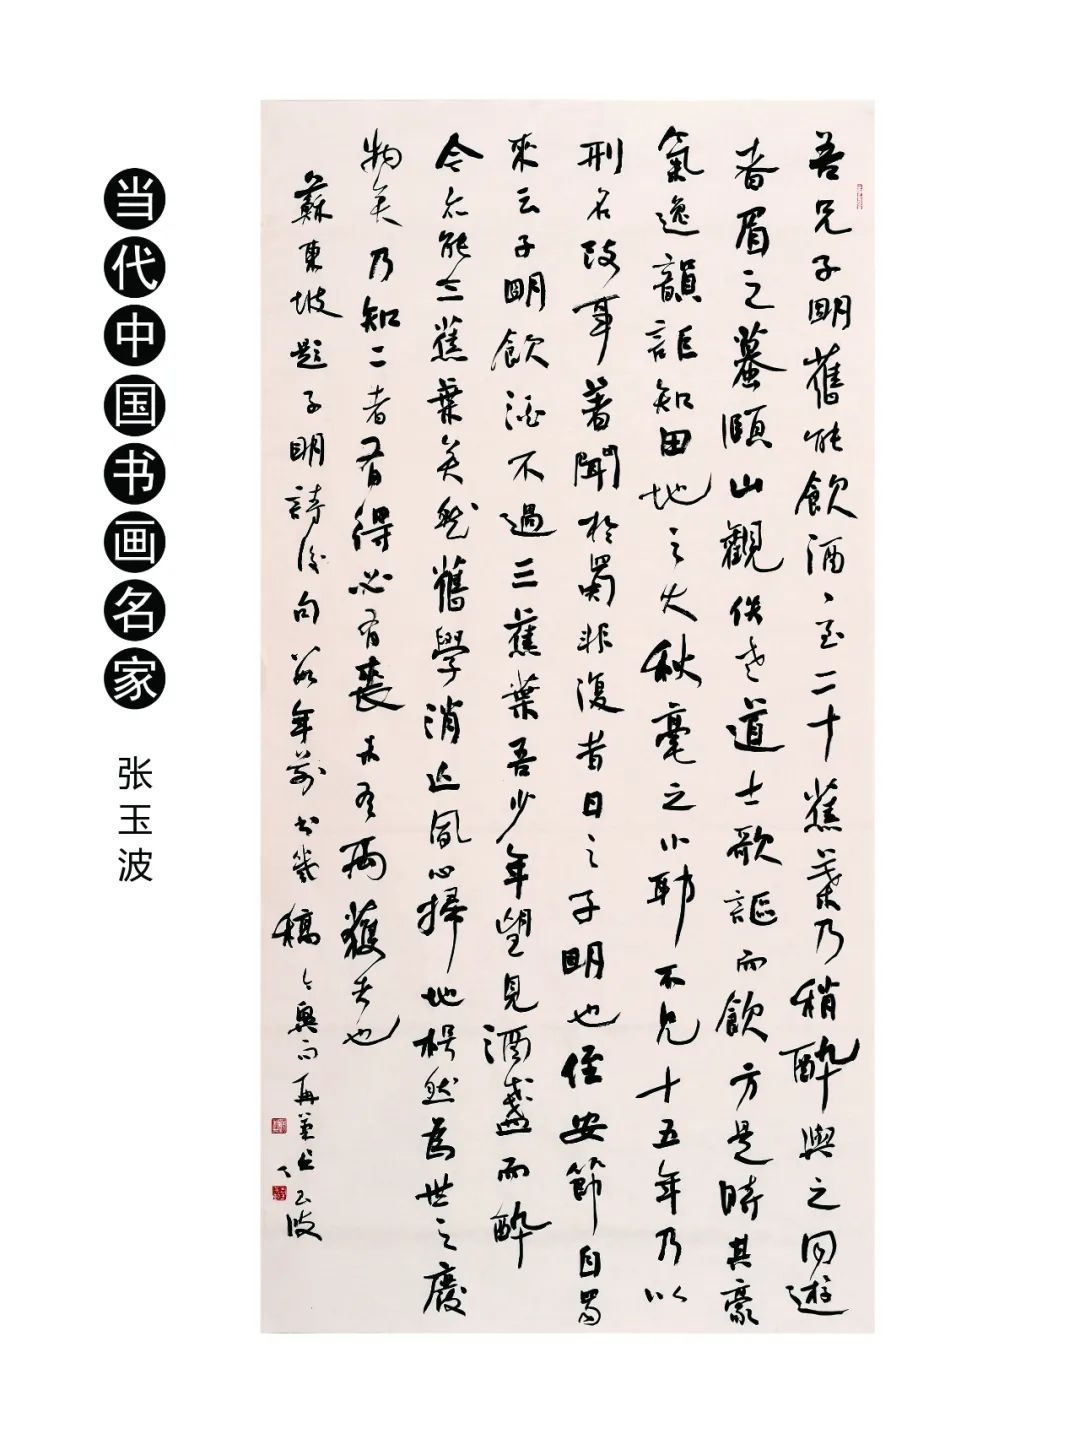 吾兄子明舊能飲酒至二十蕉葉乃稍醉與之同遊
者眉之蟇頤山觀侯老道士歌謳而飲方是時其豪
氣逸韻詎知田地之大秋毫之小耶不見十五年乃以
刑名政事著聞於蜀非復昔日之子明也侄安節自蜀
來云子明飲酒不過三蕉葉吾少年望見酒盞而醉
今亦能三蕉葉矣然舊學消近夙心掃地枵然為世之廢
物矣乃知二者有得必有喪未有兩獲者也
蘇東坡題子明詩後句數年前书幾稿今興而再玉波
当代中国书画名家
张玉波